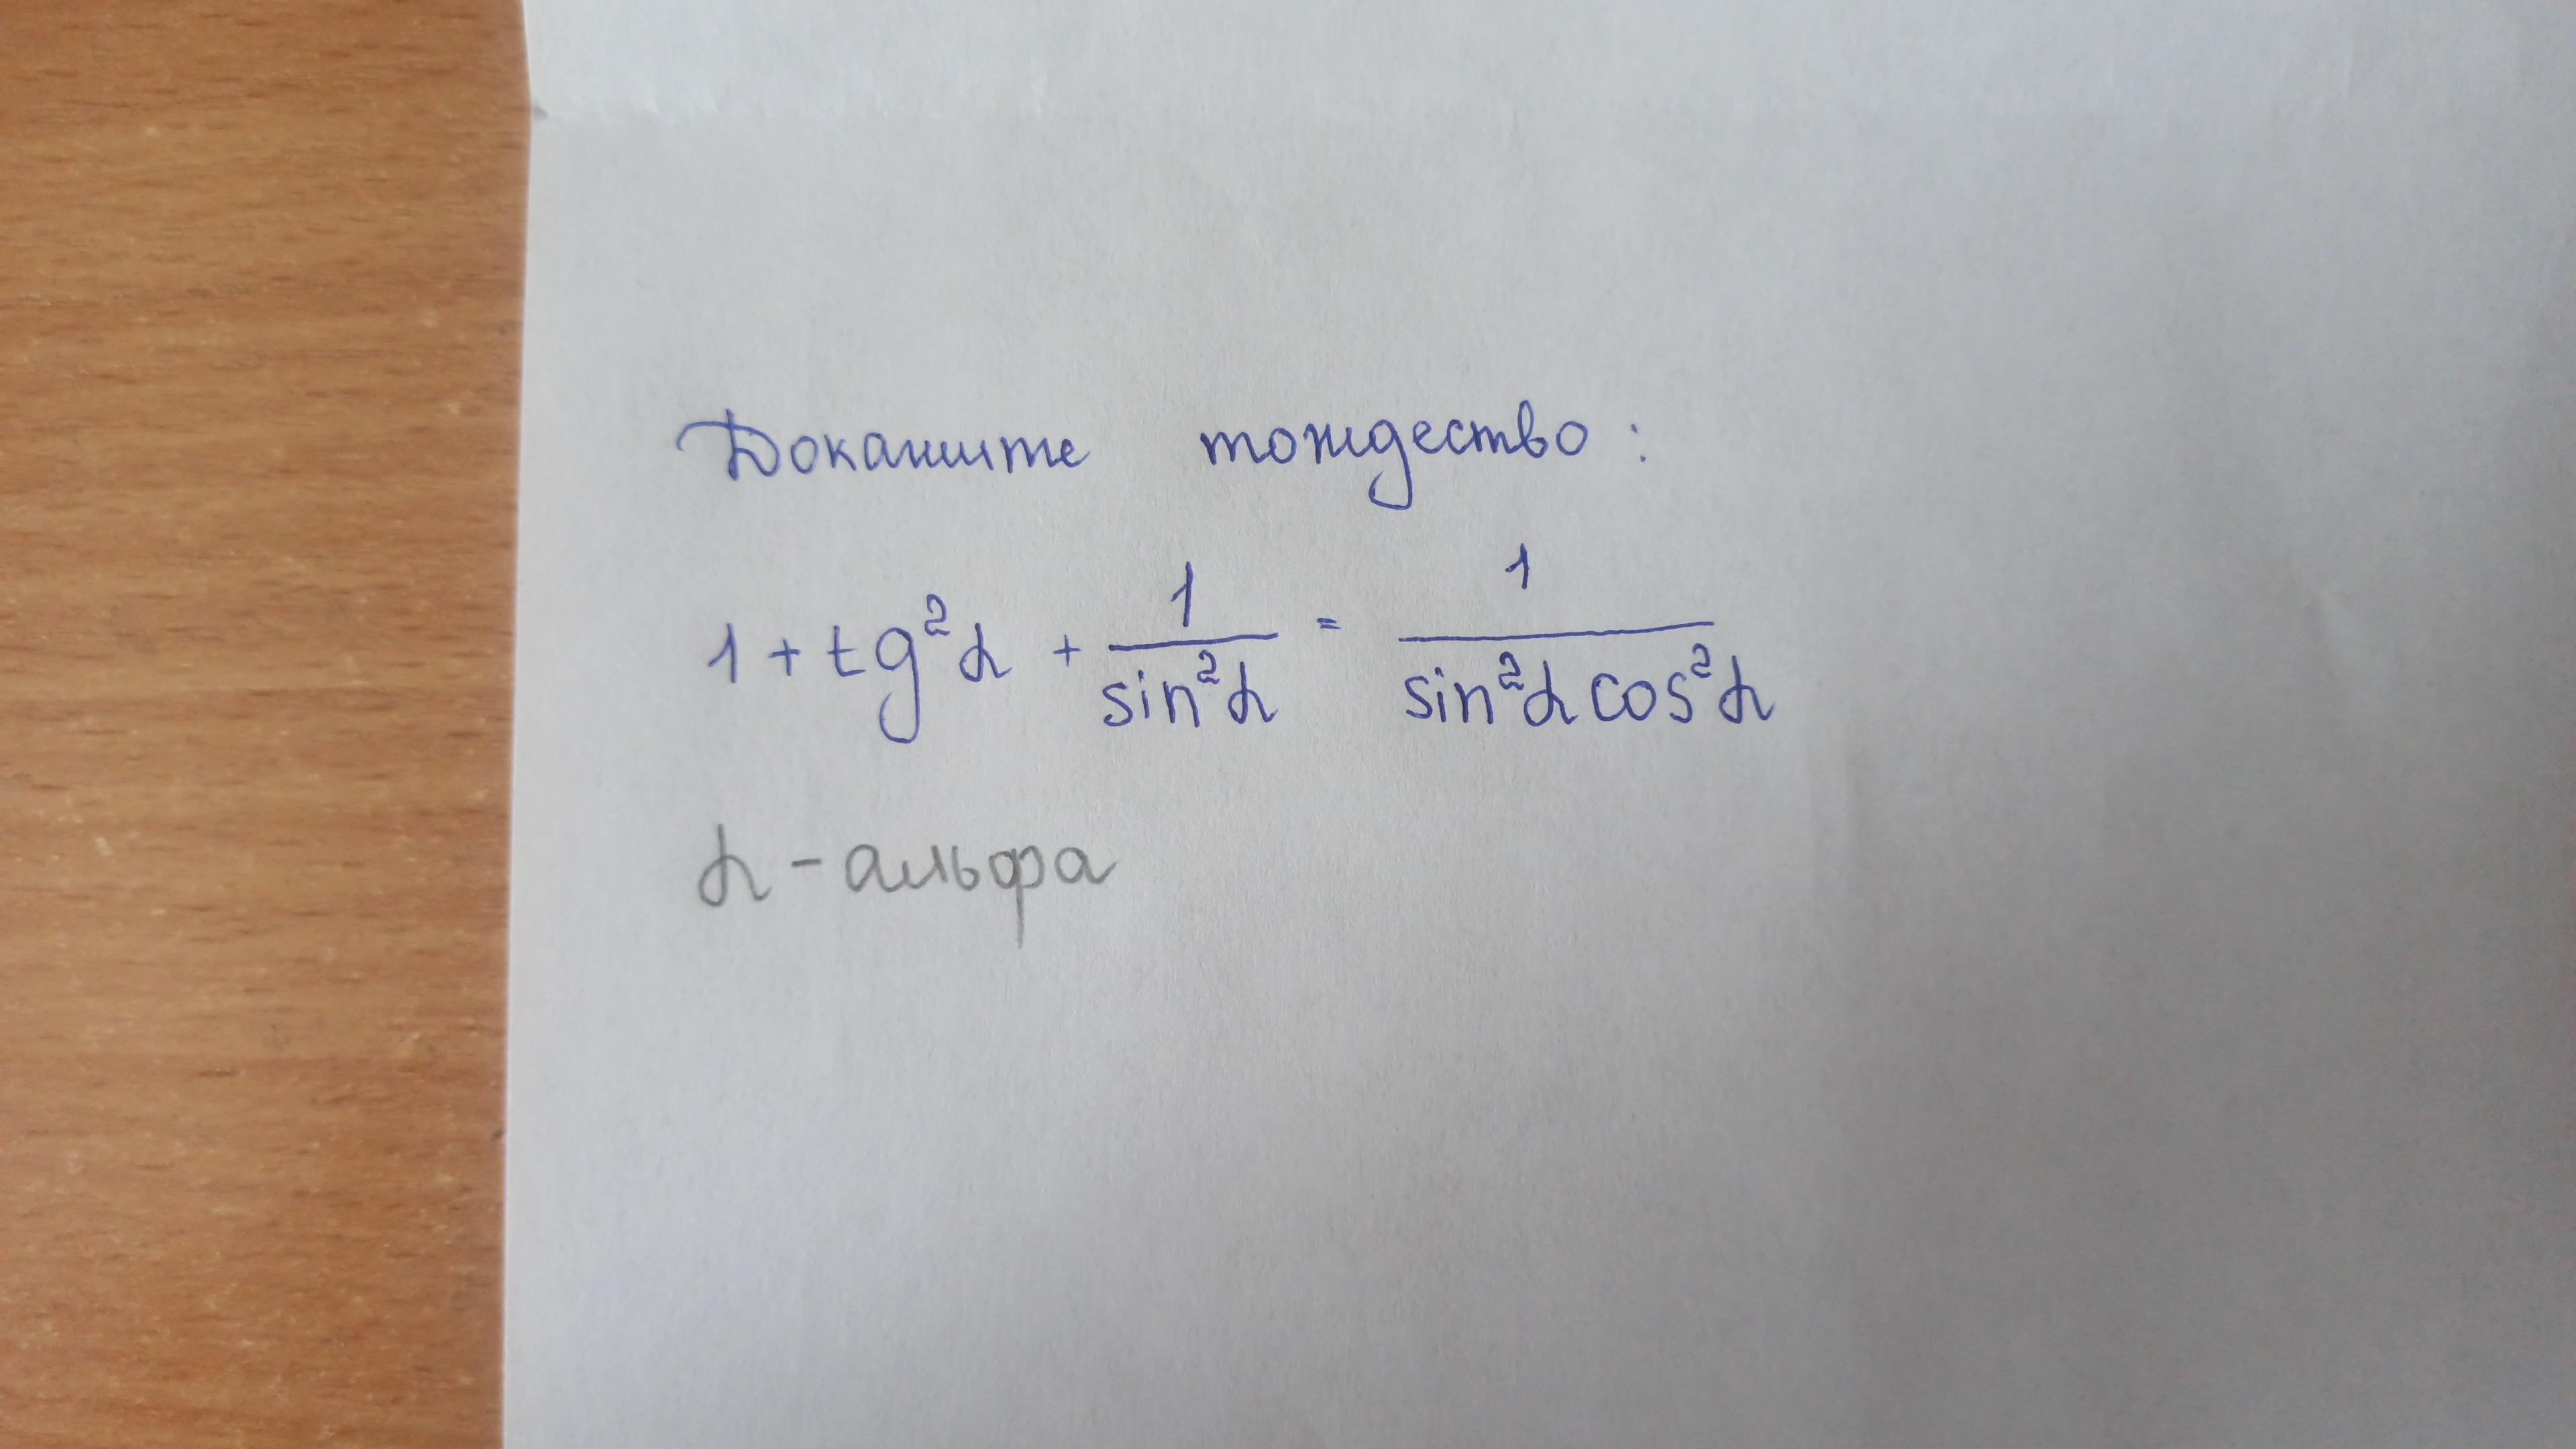 Докажите тождество:
1 + tg²α + 1/sin²α = 1/sin²α cos²α
α - альфа